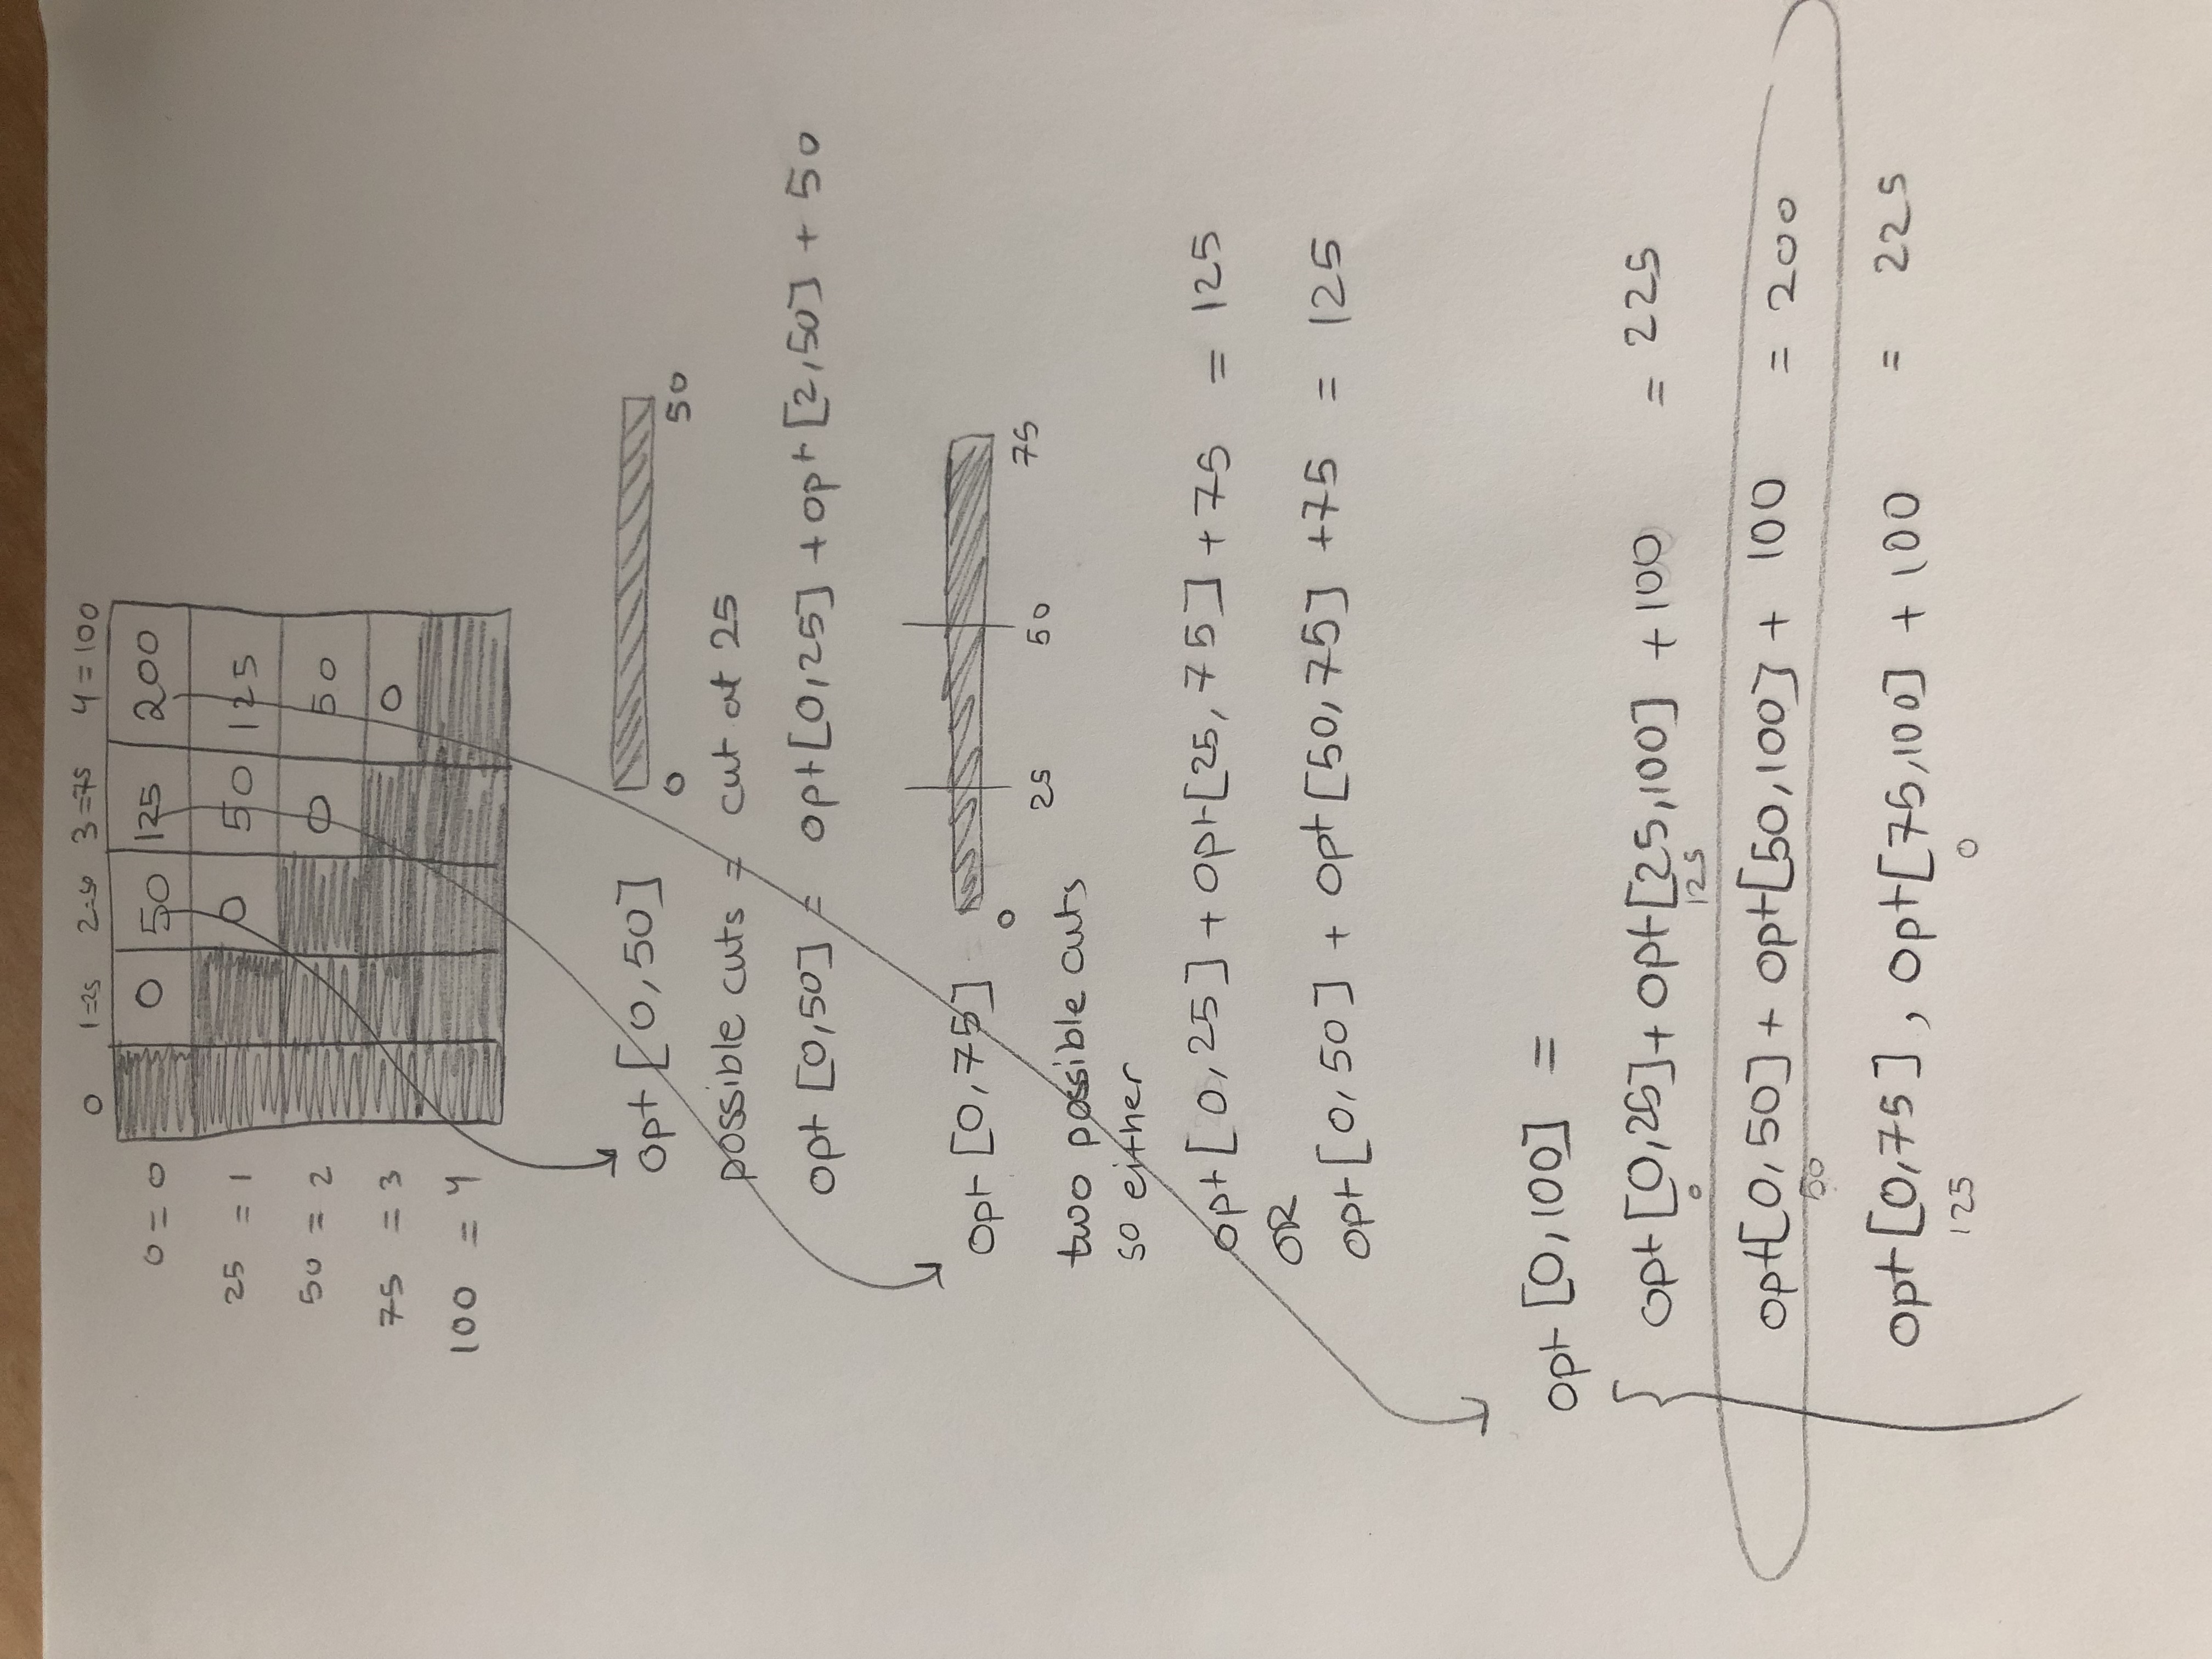 0 1=25 2=50 3=75 4=100
0 = 0 0 50 125 200
25 = 1 0 50 125
50 = 2 0 50
75 = 3 0
100 = 4
opt [0,50]
0 50
possible cuts = cut at 25
opt [0,50] = opt[0,25] + opt [2,50] + 50
opt [0,75]
0 25 50 75
two possible cuts
so either
opt [0,25] + opt[25,75] + 75 = 125
OR
opt [0,50] + opt [50,75] +75 = 125
opt [0,100] =
opt [0,25] + opt[25,100] +100 = 225
0 125
opt[0,50] + opt[50,100] + 100 = 200
50
opt [0,75] , opt[75,100] + 100 = 225
125 0